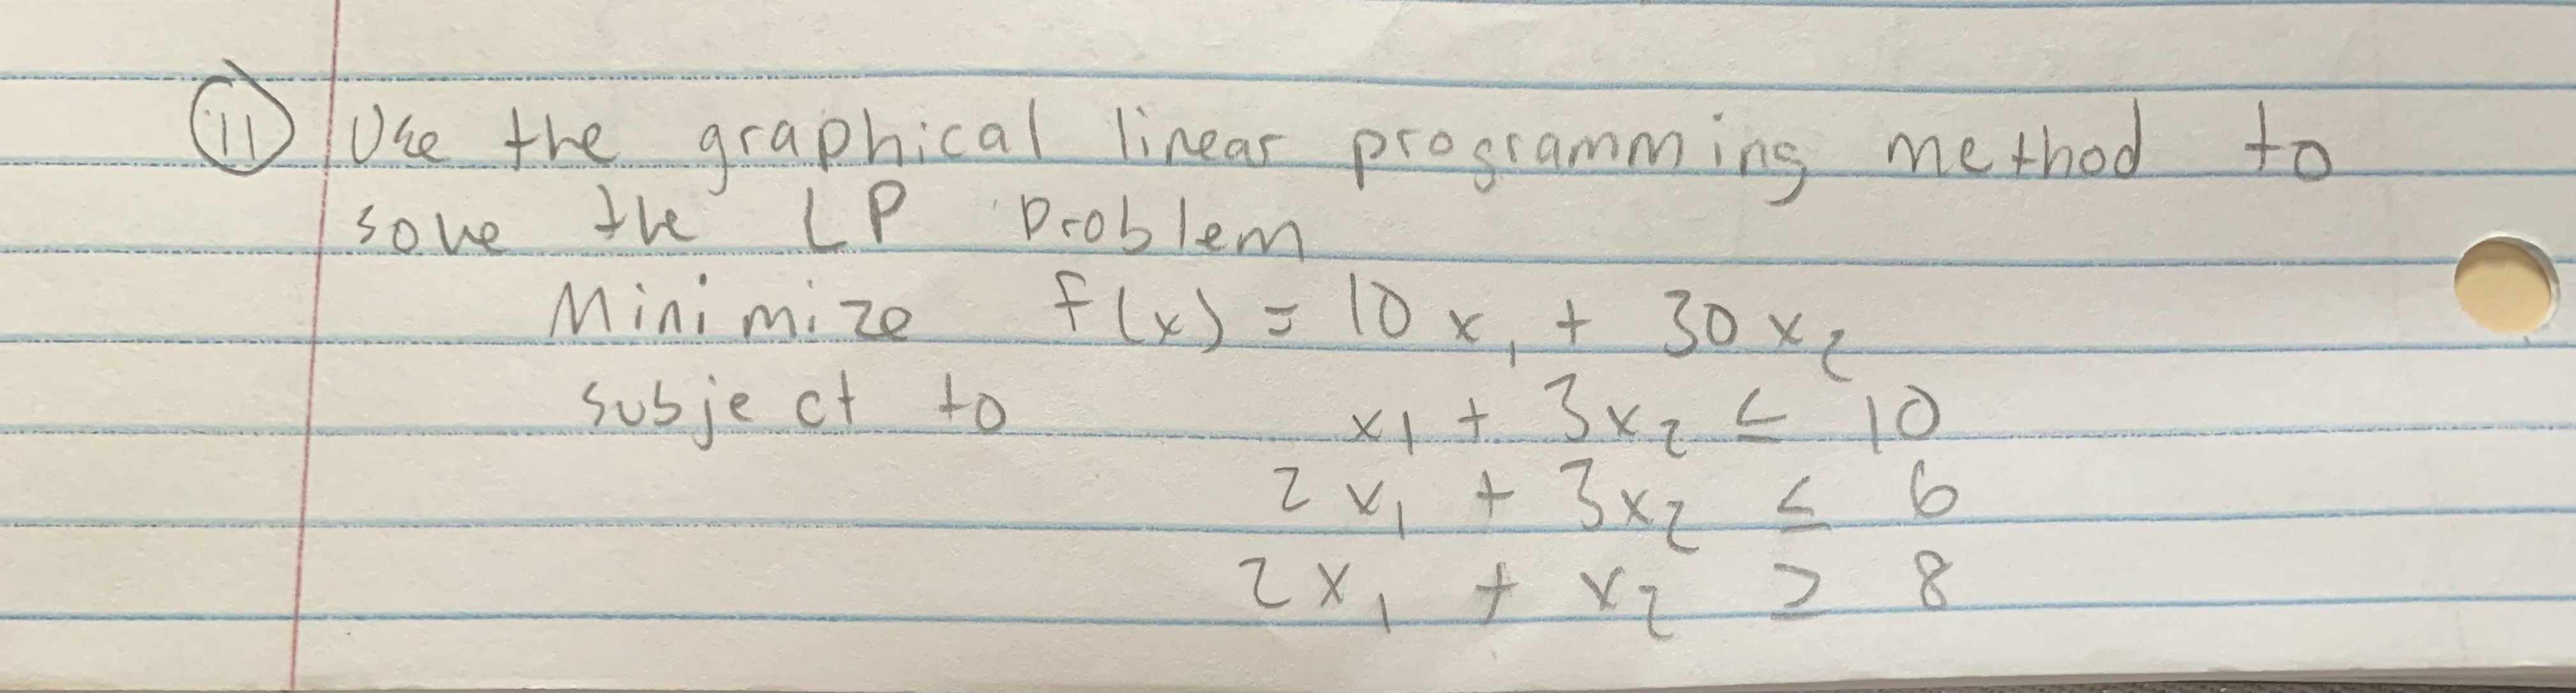 11 Use the graphical linear programming method to
solve the LP problem
Minimize f(x) = 10x₁ + 30x₂
subject to x₁ + 3x₂ ≤ 10
2x₁ + 3x₂ ≤ 6
2x₁ + x₂ ≥ 8